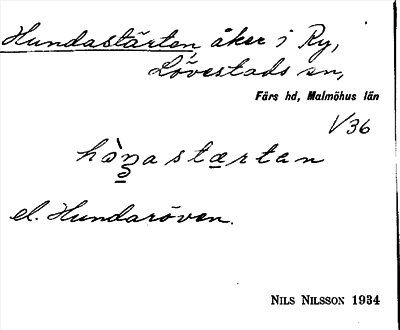 Hundastärten, åker i Ry,
Lövestads sn,
Färs hd, Malmöhus län
1/36
hòn̥astærtan
el. Hundaröven.
NILS NILSSON 1934